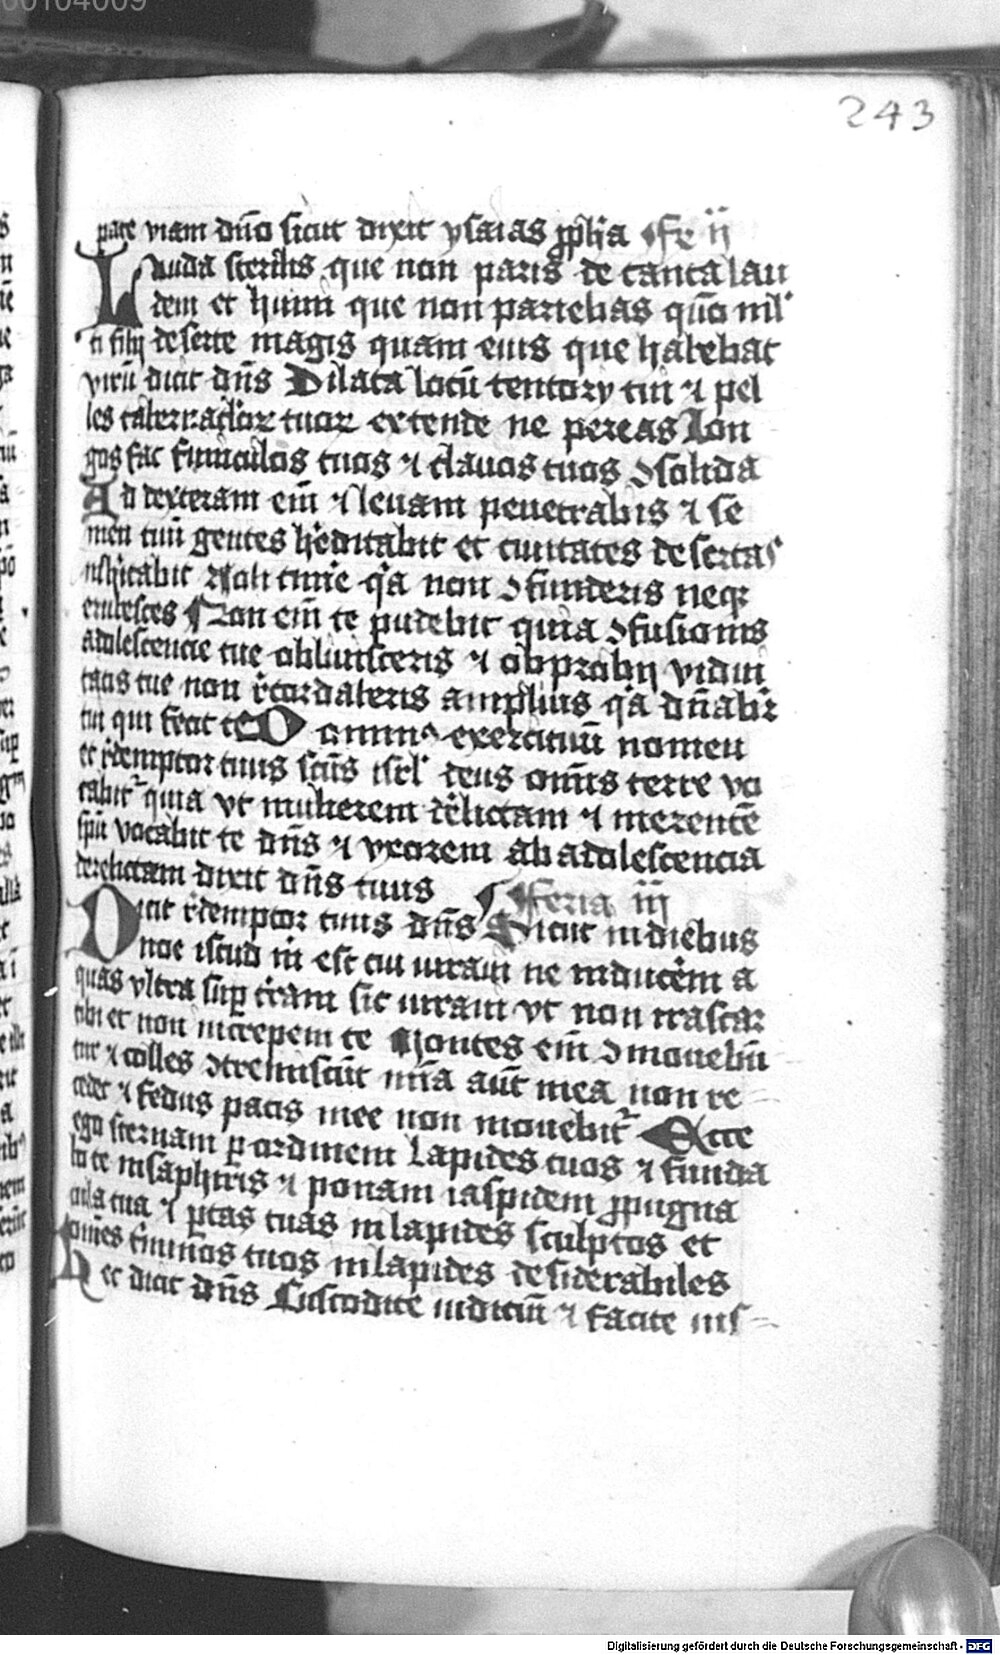 00104009
243
pare viam dn̄o sicut dixit ysaias ꝓph̄a Fr̄ ii
Lauda sterilis que non paris de canta lau
dem et hinni que non pariebas qūo ml̄
ti filij deserte magis quam eius que habebat
virū dicit dn̄s Dilata locū tentorij tui ⁊ pel
les tabernacl'oꝝ tuoꝝ extende ne parcas Lon
gos fac funiculos tuos ⁊ clauos tuos ꝯsolida
Ad dexteram em̄ ⁊ leuam penetrabis ⁊ se
men tuū gentes h'editabit et ciuitates desertas
inh'itabit Noli tim'e q'a non ꝯfunderis neqꝫ
erubesces Non em̄ te pudebit quia ꝯfusionis
adolescencie tue obliuisceris ⁊ obprobrij vidui
tatis tue non r'cordaberis amplius q'a dn̄abit̄
tui qui fecit te Dominus exercituū nomen
et r'demptor tuus sc̄us isrl' deus omīs terre vo
cabit̄ quia vt mulierem der'lictam ⁊ merentē
spū vocabit te dn̄s ⁊ vxorem ab adolescencia
derelictam dixit dn̄s tuus Feria iii
Dicit r'demptor tuus dn̄s Sicut in diebus
noe istud m̄ est cui iuraui ne inducer̄m a
quas vltra suꝑ t'ram sic iuraui vt non irascar
tibi et non increpem te Montes em̄ ꝯmouebūt
tur ⁊ colles ꝯtremiscūt mīa aūt mea non re
cedet ⁊ fedus pacis mee non mouebit̄ Ecce
ego sternam ꝑ ordinem lapides tuos ⁊ funda
bo te in saphiris ⁊ ponam iaspidem ꝓpugna
cula tua ⁊ ꝑtas tuas in lapides sculptos et
om̄es t'minos tuos in lapides desiderabiles
Hec dicit dn̄s Custodite iudiciū ⁊ facite ius
Digitalisierung gefördert durch die Deutsche Forschungsgemeinschaft - DFG